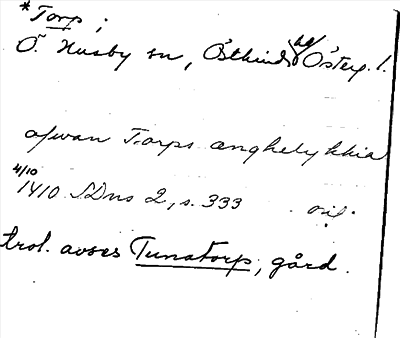 *Torp;
Ö. Husby sn, Östkinds hd Österg. l.
ofwan Torps ænghelykkia
4/10
1410 SDns 2, s. 333 orig.
trol. avses Tunatorp, gård.